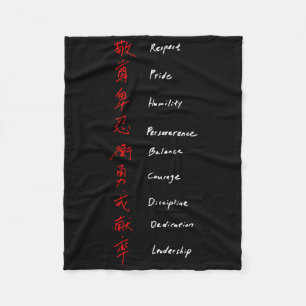 敬 Respect
尊 Pride
卑 Humility
忍 Perseverence
衡 Balance
勇 Courage
戒 Discipline
献 Dedication
率 Leadership